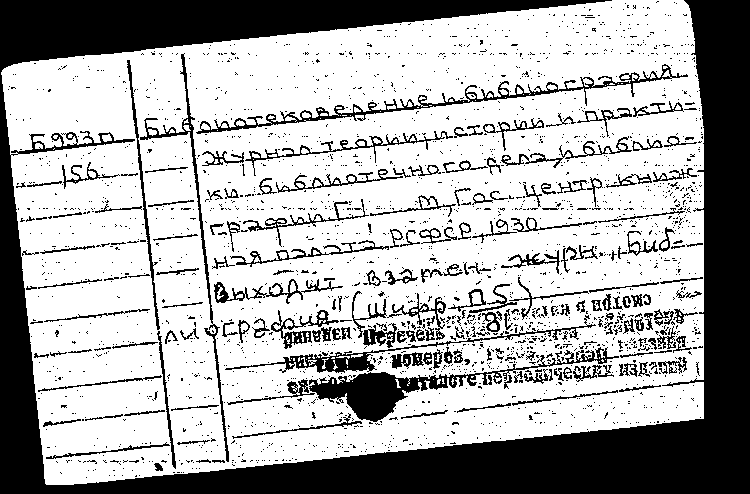 Б993п Библиотековедение и библиография.
156 журнал теории, истории и практи-
ки библиотечного дела и библио-
графии Г-I М, Гос. центр. книж-
ная палата РСФСР, 1930
Выходит взамен журн. „Биб-
лиография" (Шифр: П5/8)
Перечень
номеров,
периодических изданий